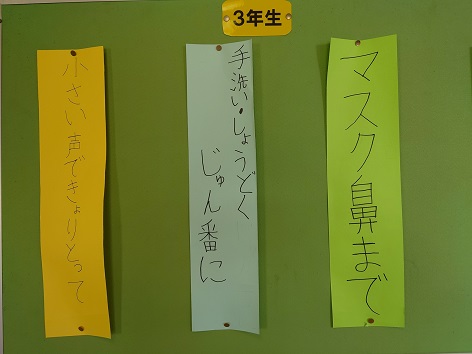 3年生
マスク鼻まで
手洗い・しょうどく
じゅん番に
小さい声できょりとって